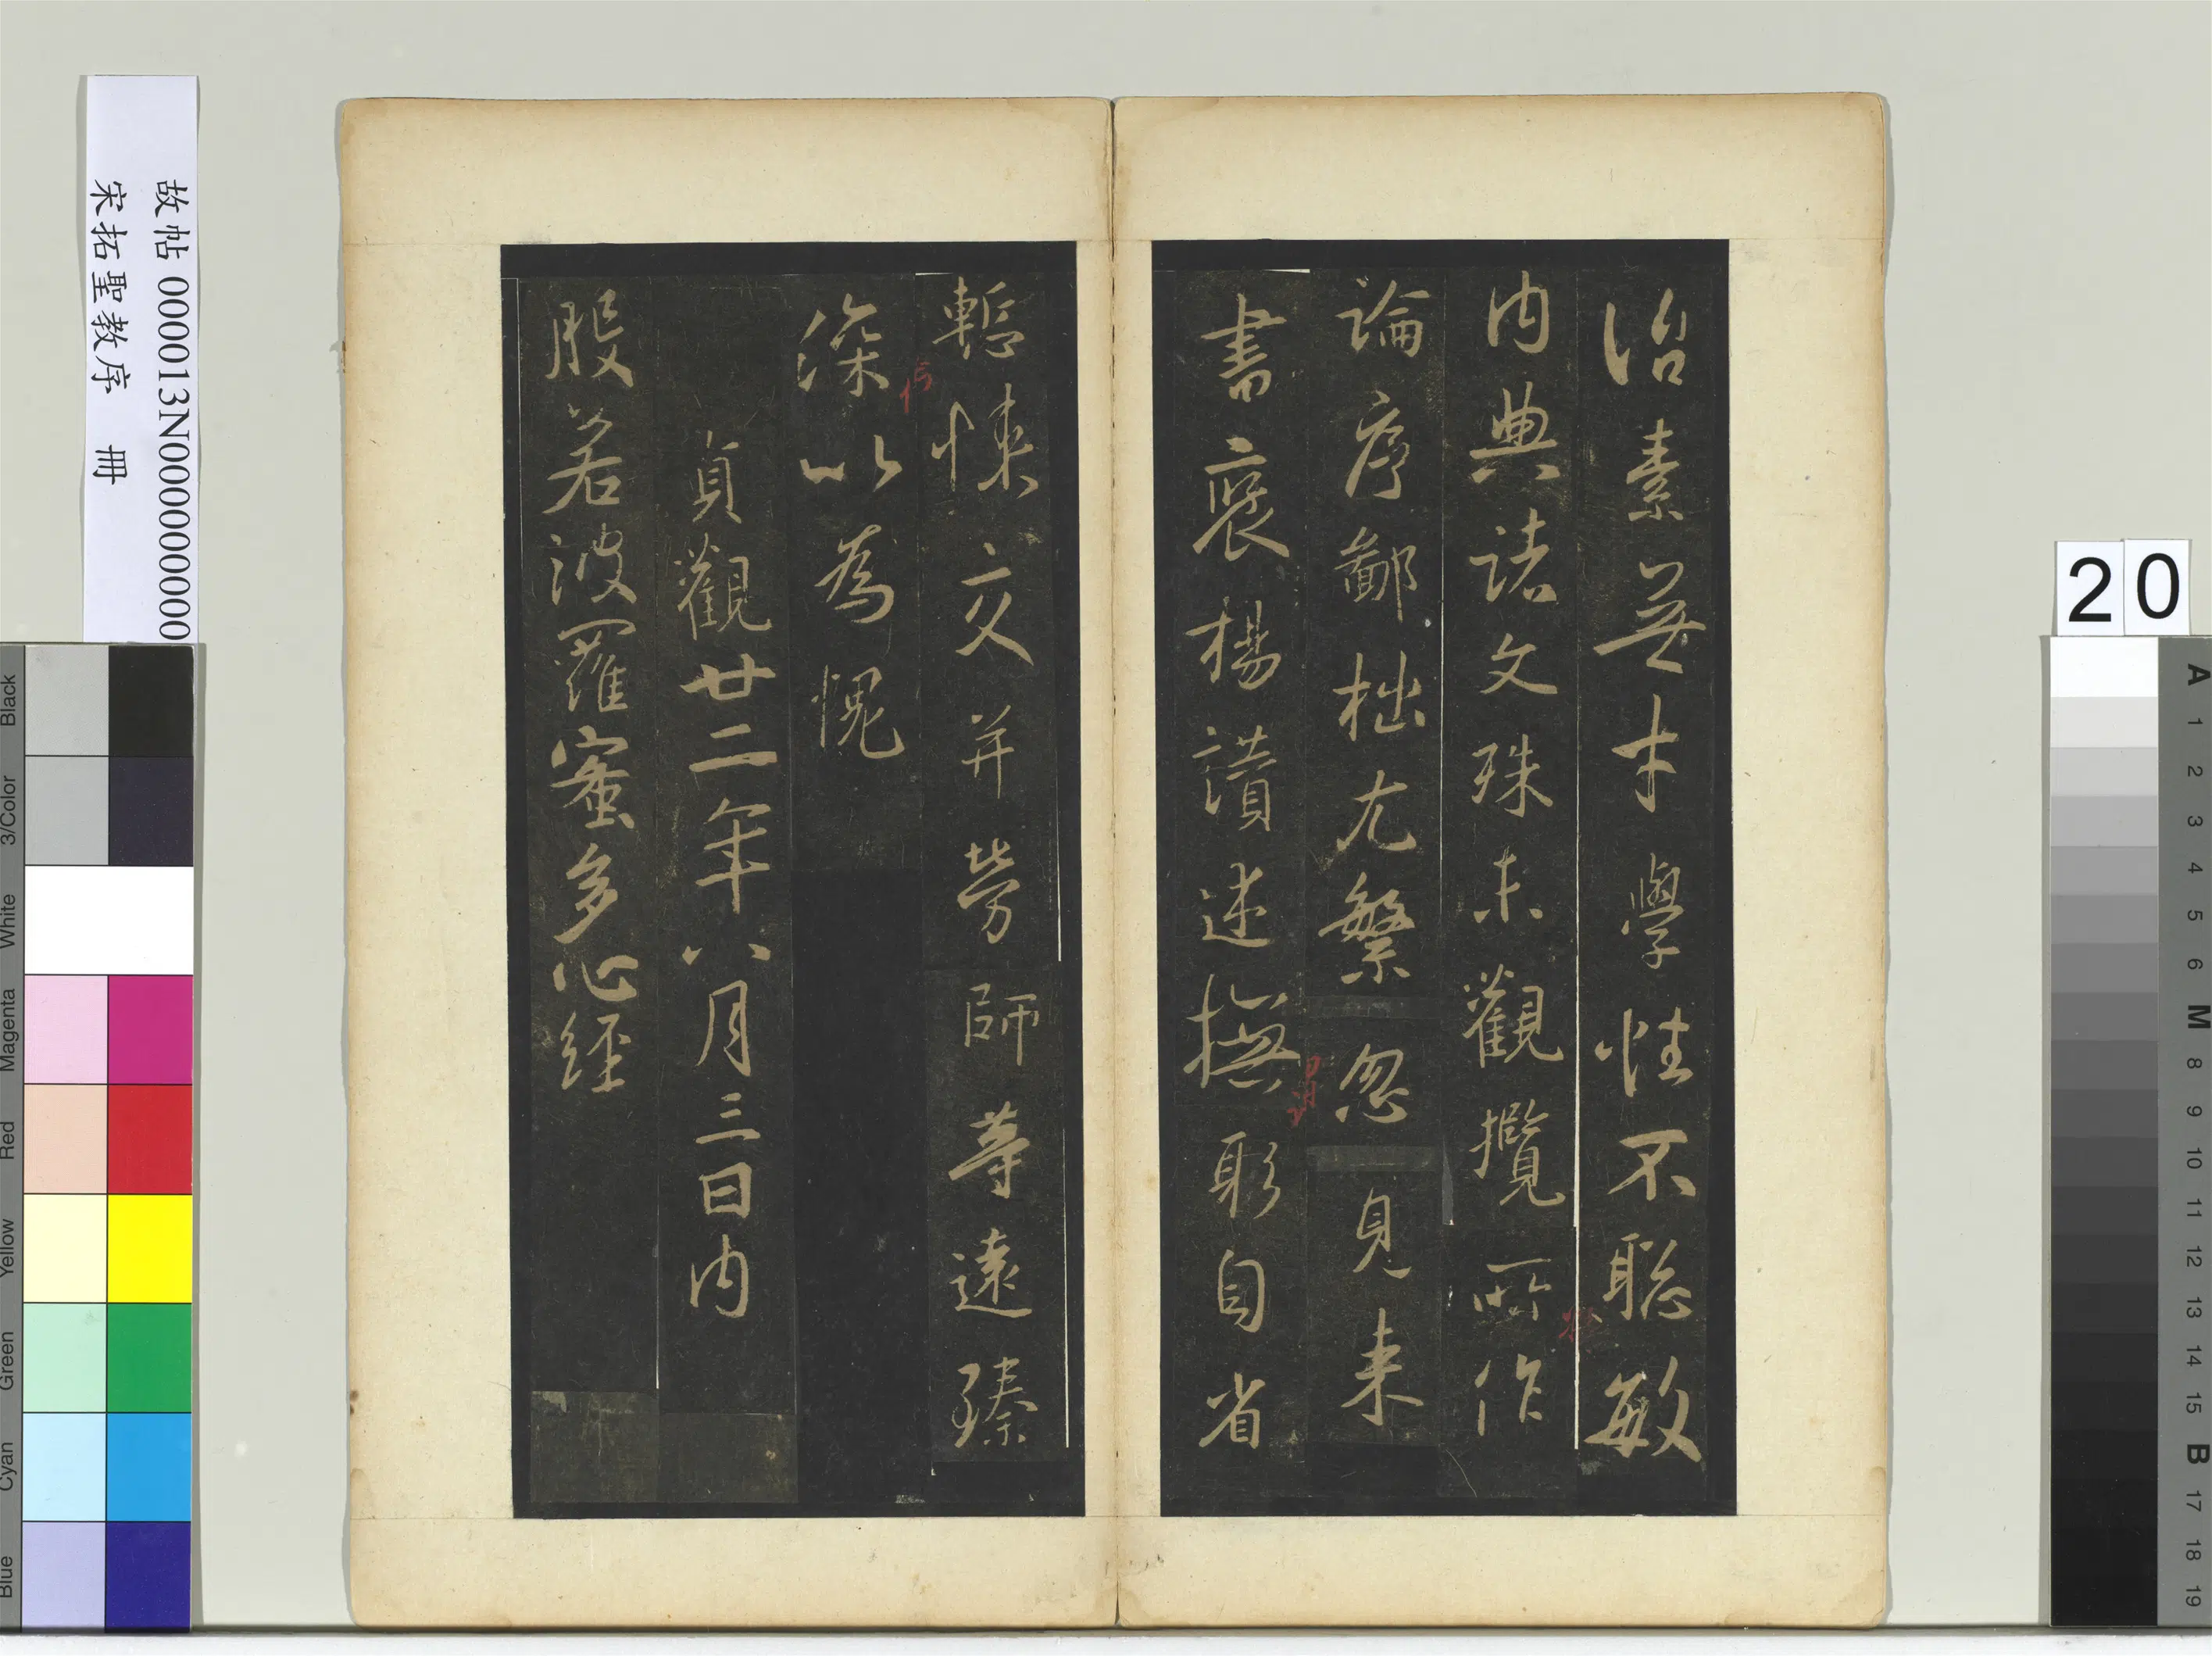 治素無才學性不聰敏
内典諸文殊未觀攬所作
論序鄙拙尤繁忽見来
書褒揚讃述撫躬自省
慙悚交并勞師等遠臻
深以為愧
貞觀廿二年八月三日内
般若波羅蜜多心經
故帖 000013N000000000
宋拓聖教序 冊
20
Black
3/Color
White
Magenta
Red
Yellow
Green
Cyan
Blue
A
1
2
3
4
5
6
M
8
9
10
11
12
13
14
15
B
17
18
19